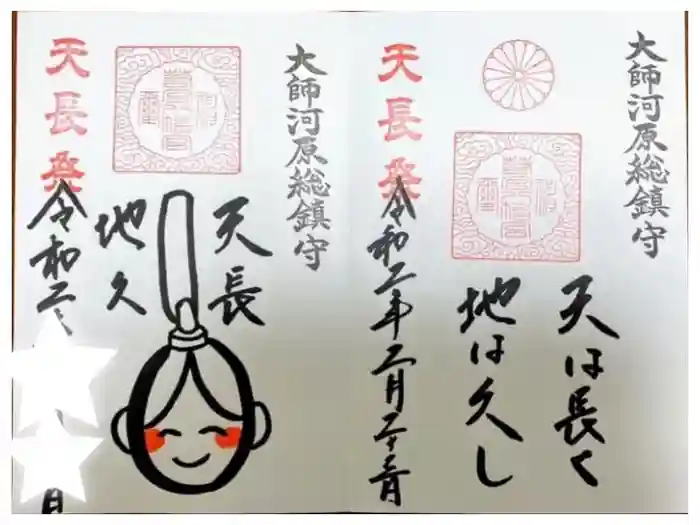 大師河原総鎮守
天長祭
天は長く
地は久し
令和二年二月二十三日
大師河原総鎮守
天長祭
天長
地久
令和二
日